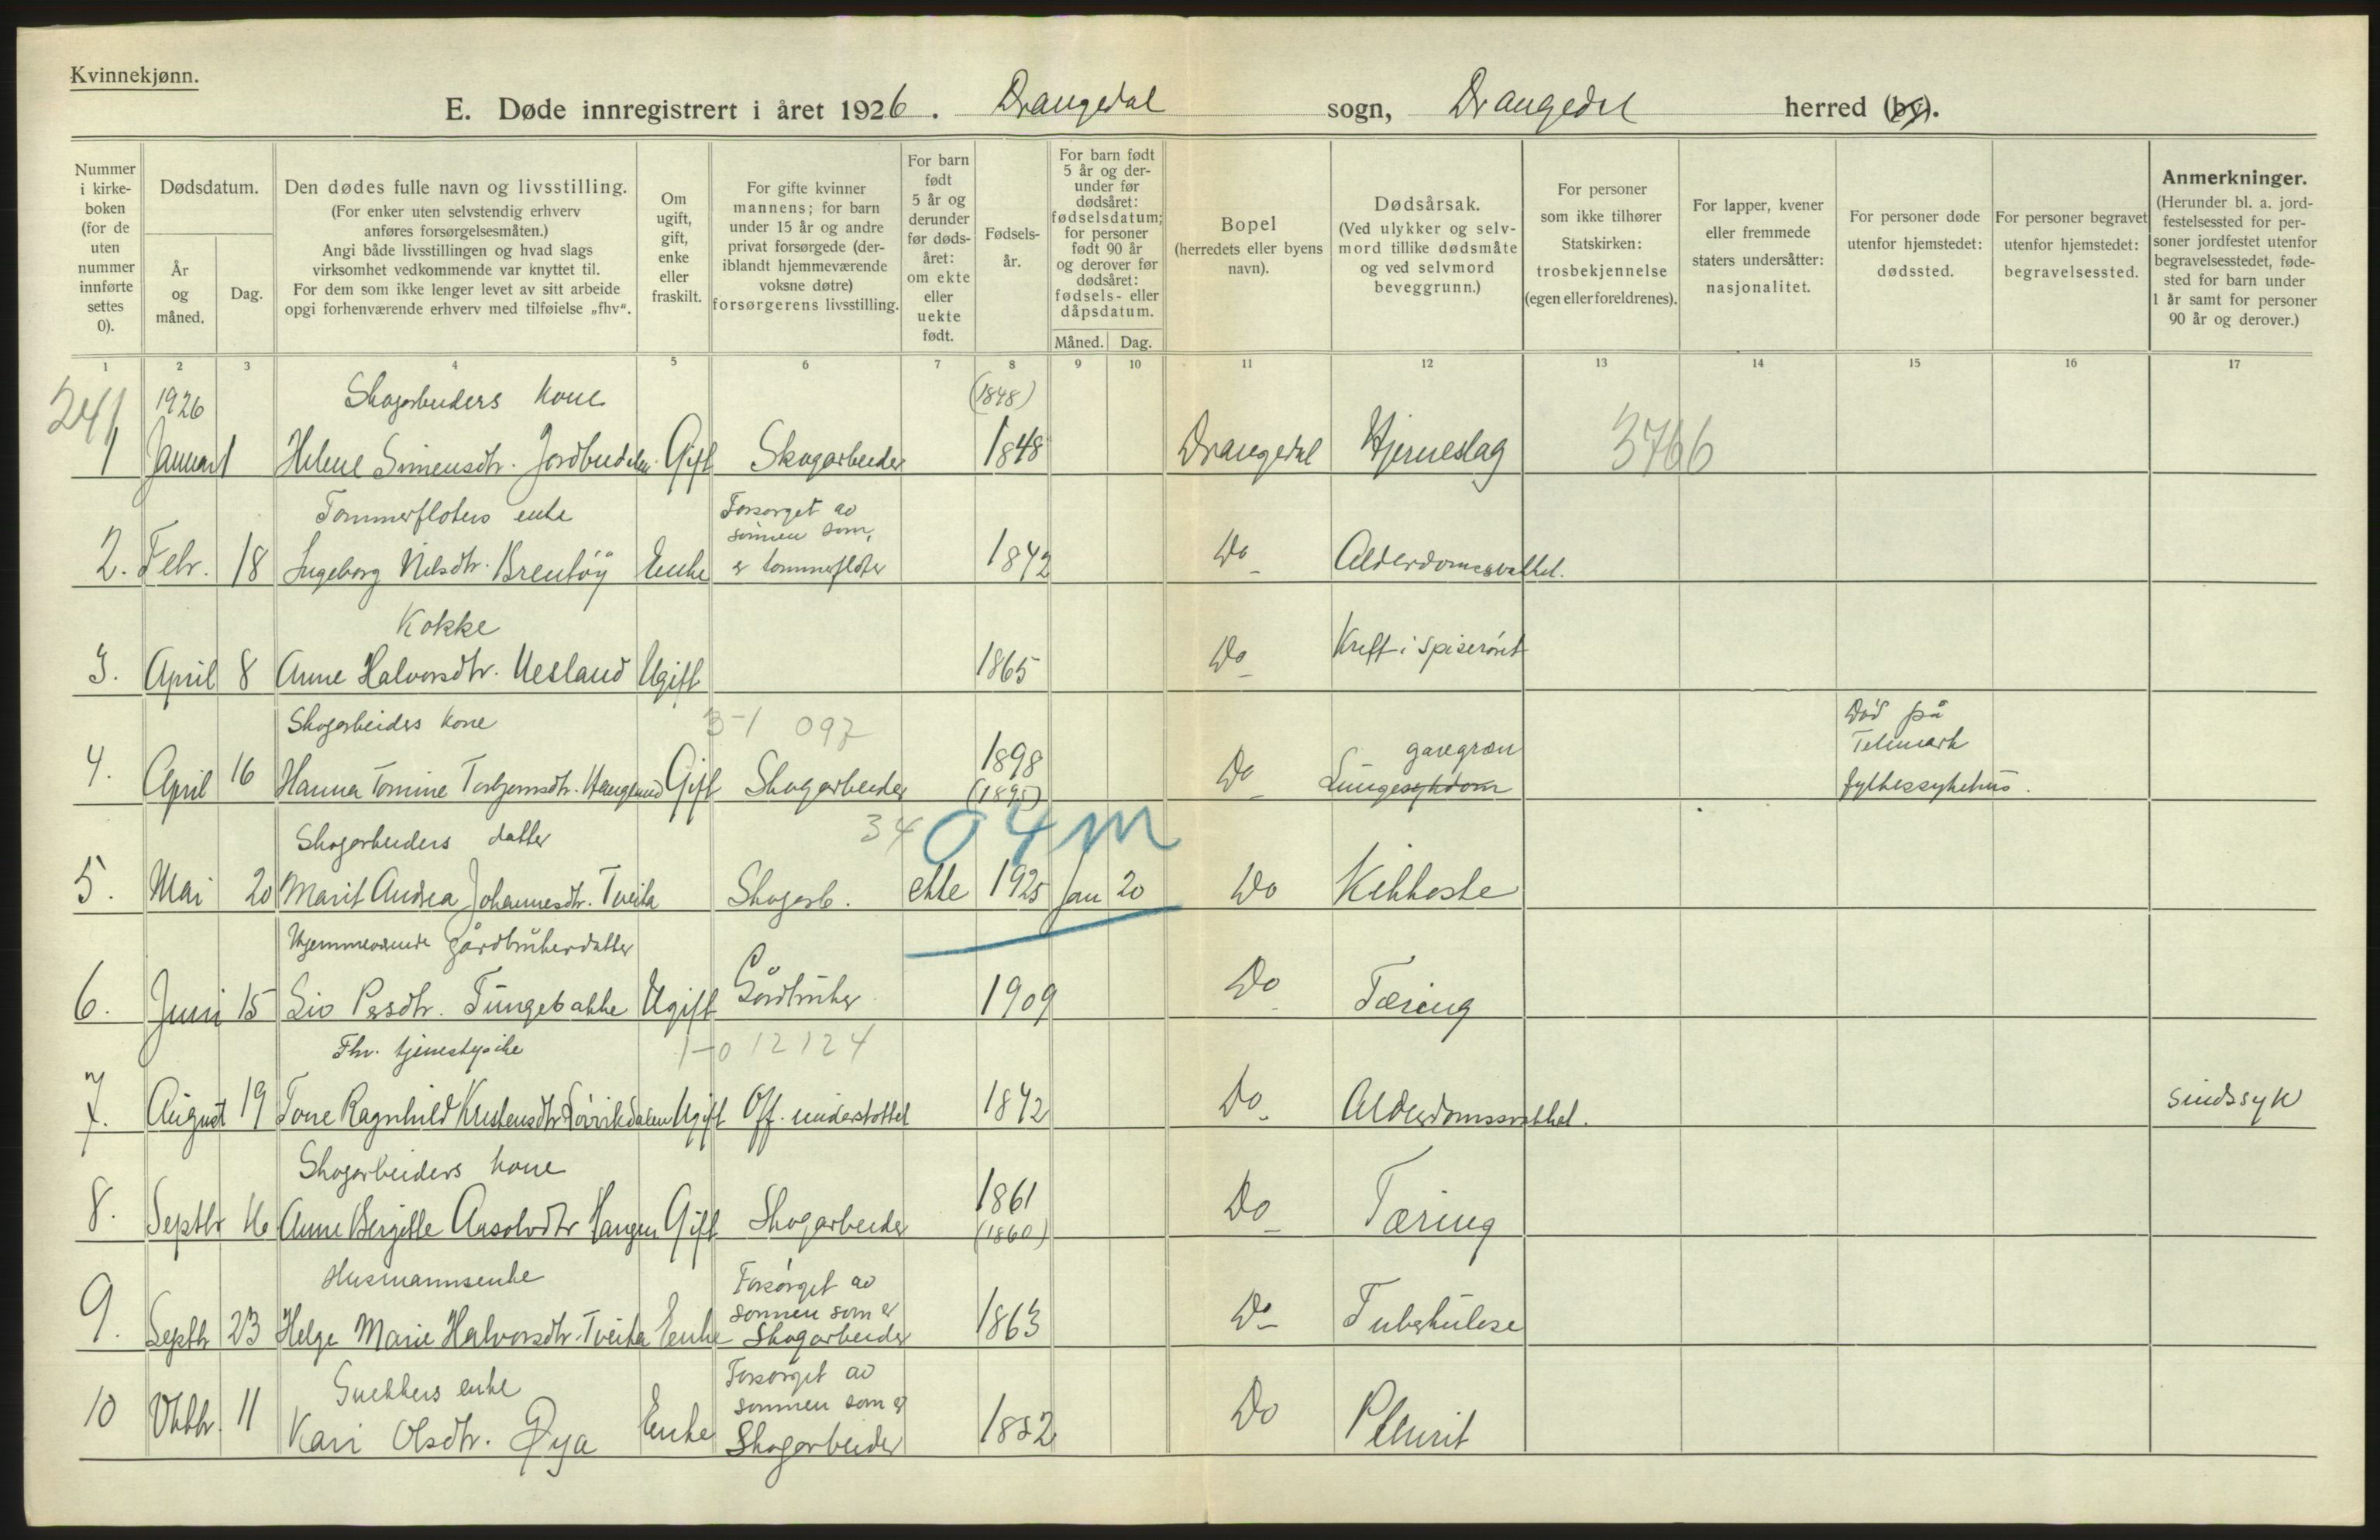 Kvinnekjønn.
E. Døde innregistrert i året 1926. Drangedal sogn, Drangedal herred (by).
Nummer i kirke-boken (for de uten nummer innførte settes 0).
Dødsdatum.
År og måned.
Dag.
Den dødes fulle navn og livsstilling.
(For enker uten selvstendig erhverv anføres forsørgelsesmåten.)
Angi både livsstillingen og hvad slags virksomhet vedkommende var knyttet til.
For dem som ikke lenger levet av sitt arbeide opgi forhenværende erhverv med tilføielse „fhv“.
Om ugift, gift, enke eller fraskilt.
For gifte kvinner mannens; for barn under 15 år og andre privat forsørgede (deriblandt hjemmeværende voksne døtre) forsørgerens livsstilling.
For barn født 5 år og derunder før dødsåret: om ekte eller uekte født.
Fødsels-år.
For barn født 5 år og derunder før dødsåret: fødselsdatum; for personer født 90 år og derover før dødsåret: fødsels- eller dåpsdatum.
Måned. Dag.
Bopel (herredets eller byens navn).
Dødsårsak.
(Ved ulykker og selvmord tillike dødsmåte og ved selvmord beveggrunn.)
For personer som ikke tilhører Statskirken: trosbekjennelse (egen eller foreldrenes).
For lapper, kvener eller fremmede staters undersåtter: nasjonalitet.
For personer døde utenfor hjemstedet: dødssted.
For personer begravet utenfor hjemstedet: begravelsessted.
Anmerkninger.
(Herunder bl. a. jordfestelsessted for personer jordfestet utenfor begravelsesstedet, fødested for barn under 1 år samt for personer 90 år og derover.)
1 2 3 4 5 6 7 8 9 10 11 12 13 14 15 16 17
241 1926 Skogarbeiders kone (1848)
1 Januar 1 Helene Simensdtr. Gift Skogarbeider 1848 Drangedal Hjerneslag 3766
Tømmerfløters enke Forsørget av sønnen som,
2. Febr. 18 Ingeborg Nilsdtr. Brenløy Enke er tømmerfløter 1842 Do Alderdomssvakhet.
Kokke
3. April 8 Anne Halvorsdtr. Vesland Ugift 1865 Do Kreft i spiserøret
Skogarbeiders kone 3-1 097 1898 Død på Telemark
4. April 16 Hanna Tomine Torbjørnsdtr. Haugland Gift Skogarbeider (1895) Do Lungesykdom gangræn fylkessykehus.
Skogarbeiders datter 34 04 m
5. Mai 20 Marit Andrea Johannesdtr. Tveita Skogarb. ekte 1925 Jan 20 Do Kikhoste
Hjemmeværende gårdbrukerdatter
6. Juni 15 Liv Persdtr. Tungebakke Ugift Gårdbruker 1909 Do Tæring
Fhv. tjenestepike 1-0 12124
7. August 19 Tone Ragnhild Kristensdtr. Ugift Off. understøttet 1842 Do Alderdomssvakhet. Sindssyk
Skogarbeiders kone 1861
8. Septbr 16 Anne Bergitte Aasolvdtr Haugen Gift Skogarbeider (1860) Do Tæring
Husmannsenke Forsørget av sønnen som er
9. Septbr 23 Helge Marie Halvorsdtr. Tveita Enke Skogarbeider 1863 Do Tuberkulose
Snekkers enke Forsørget av sønnen som er
10 Oktbr. 11 Kari Olsdtr. Øya Enke Skogarbeider 1852 Do Pleurit